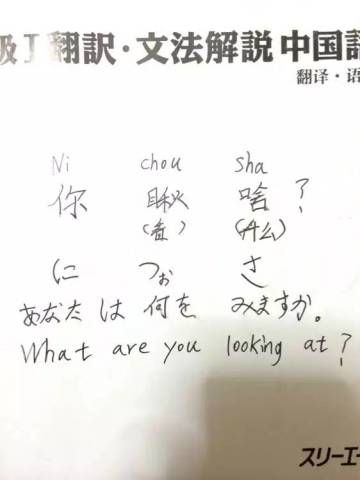 級I翻訳・文法解説 中国語
翻译・语
Ni chou sha
你 瞅 啥？
（看）（什么）
に つぉ さ
あなたは 何を みますか。
What are you looking at?
スリーエー